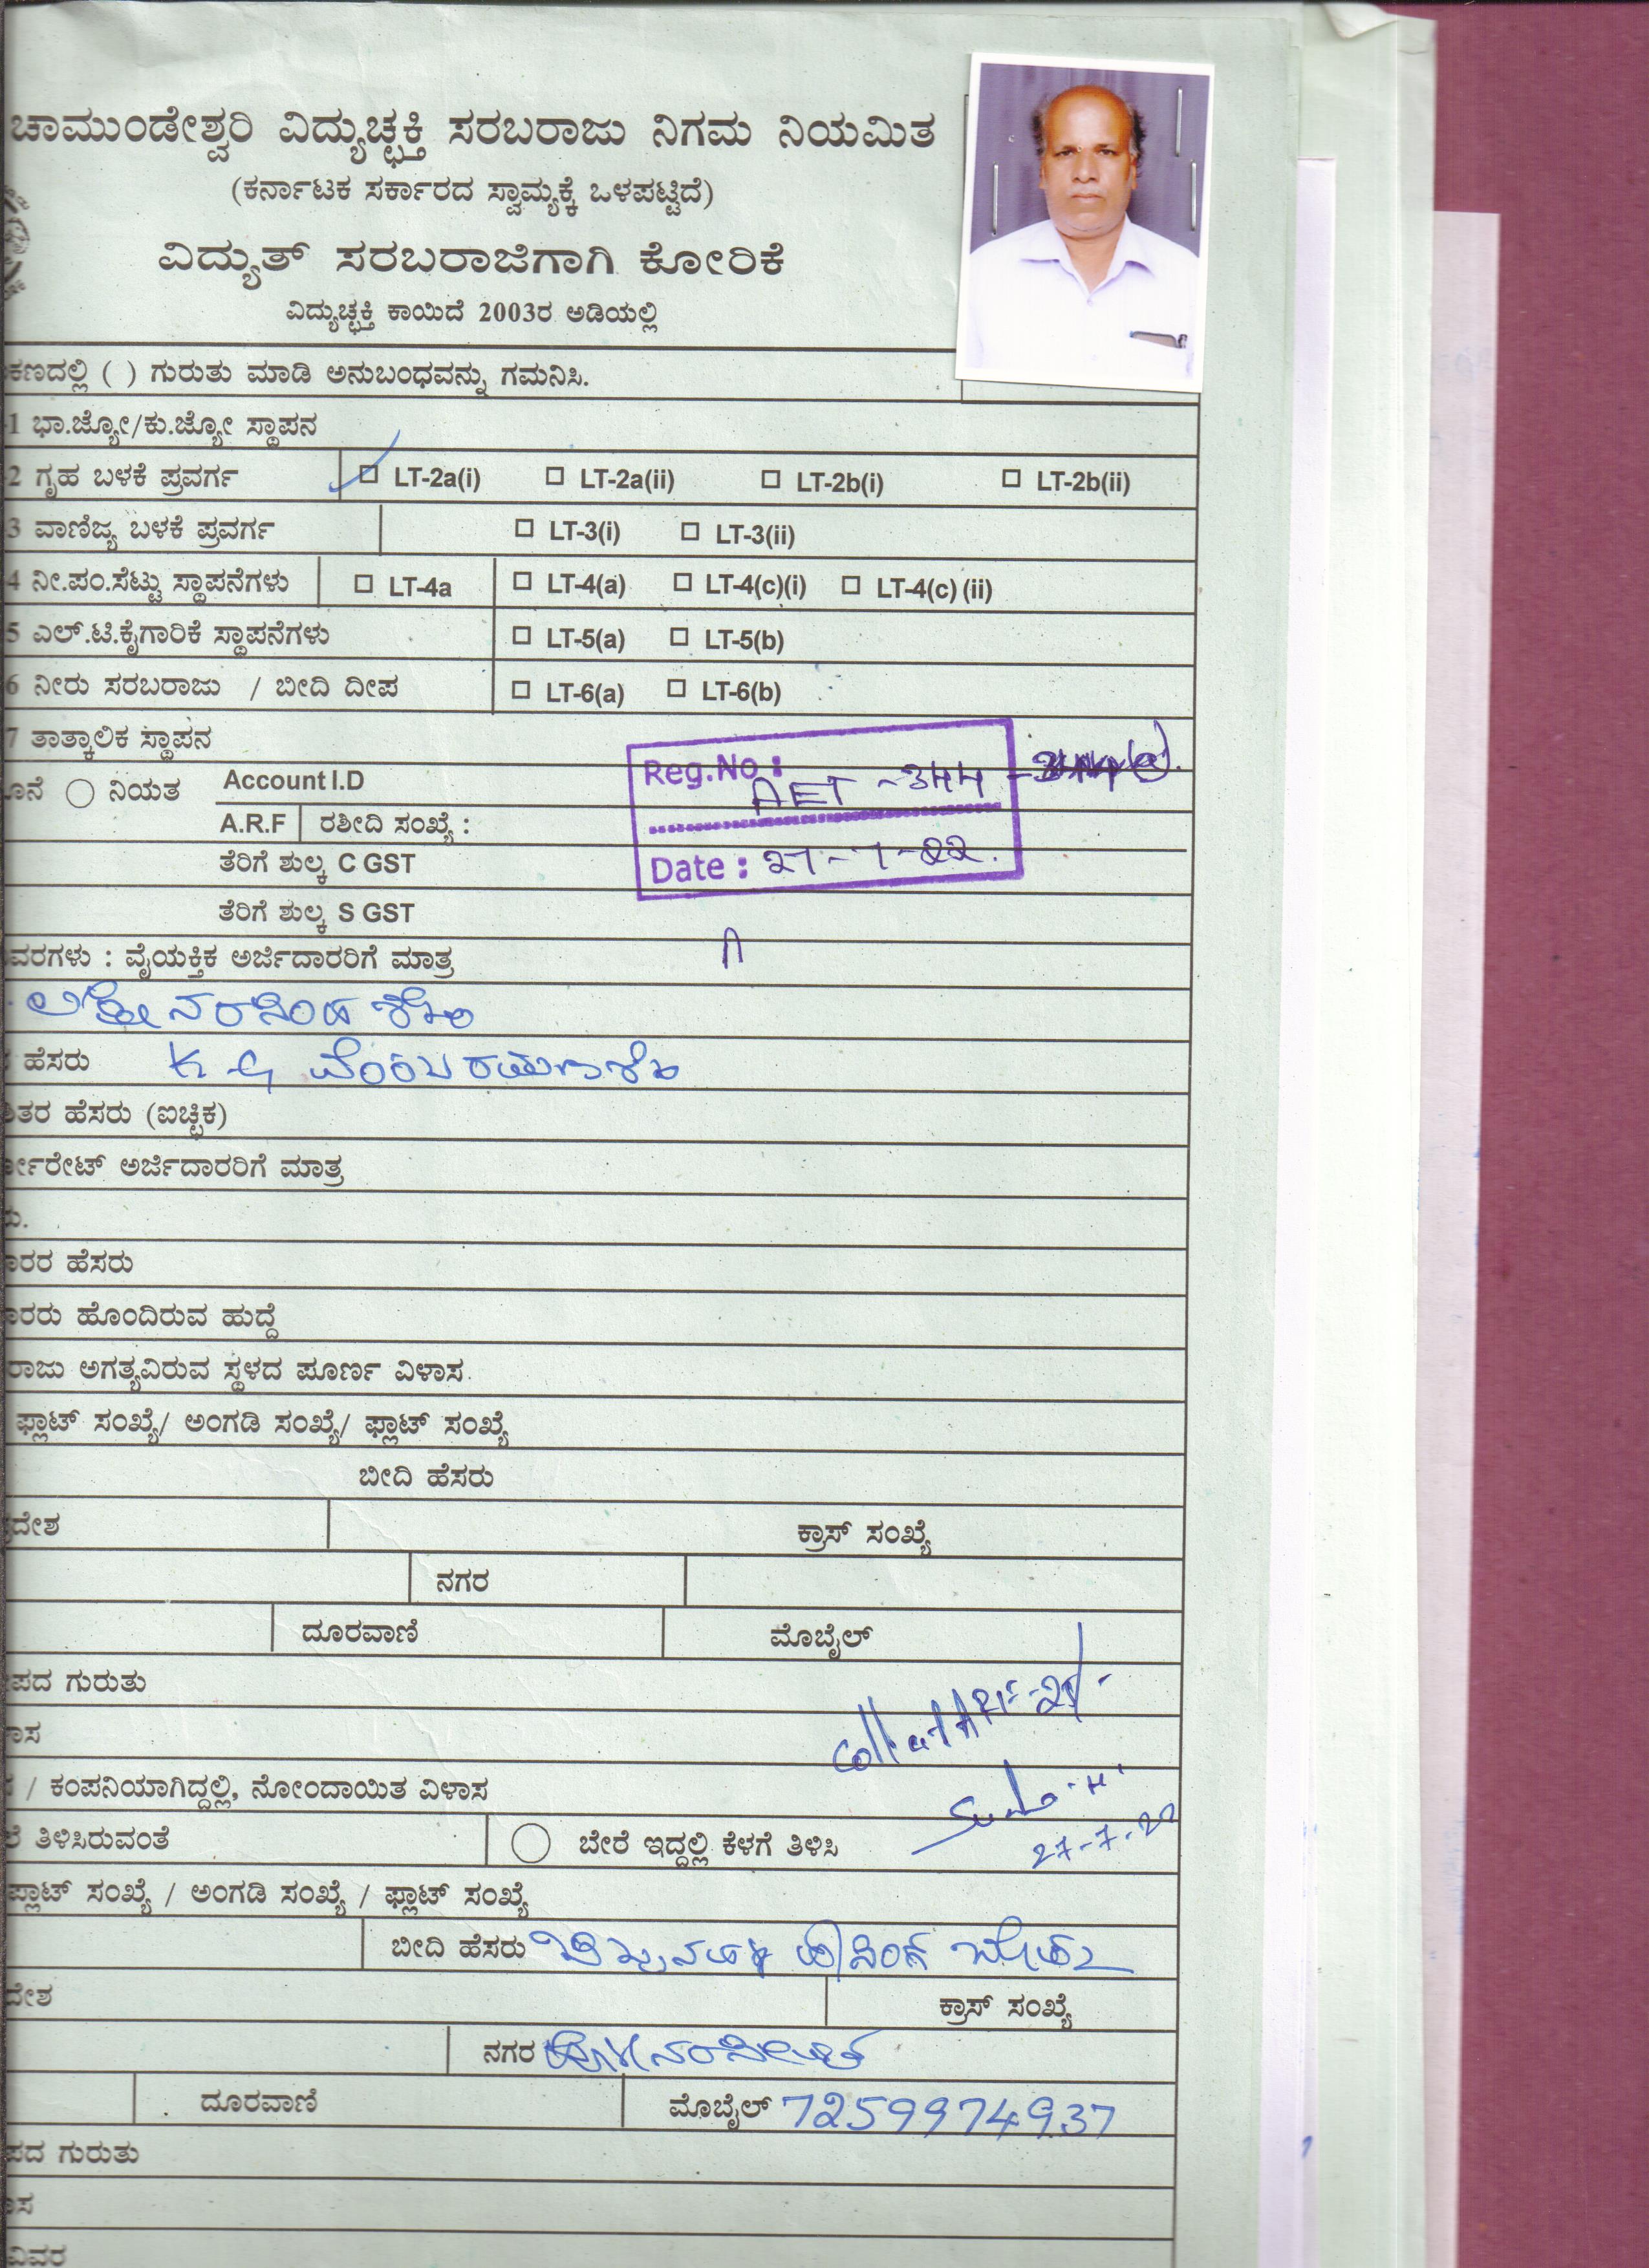 ಚಾಮುಂಡೇಶ್ವರಿ ವಿದ್ಯುಚ್ಛಕ್ತಿ ಸರಬರಾಜು ನಿಗಮ ನಿಯಮಿತ
(ಕರ್ನಾಟಕ ಸರ್ಕಾರದ ಸ್ವಾಮ್ಯಕ್ಕೆ ಒಳಪಟ್ಟಿದೆ)
ವಿದ್ಯುತ್ ಸರಬರಾಜಿಗಾಗಿ ಕೋರಿಕೆ
ವಿದ್ಯುಚ್ಛಕ್ತಿ ಕಾಯಿದೆ 2003ರ ಅಡಿಯಲ್ಲಿ
ಕಣದಲ್ಲಿ ( ) ಗುರುತು ಮಾಡಿ ಅನುಬಂಧವನ್ನು ಗಮನಿಸಿ.
1 ಭಾ.ಜ್ಯೋ/ಕು.ಜ್ಯೋ ಸ್ಥಾಪನ
2 ಗೃಹ ಬಳಕೆ ಪ್ರವರ್ಗ LT-2a(i) LT-2a(ii) LT-2b(i) LT-2b(ii)
3 ವಾಣಿಜ್ಯ ಬಳಕೆ ಪ್ರವರ್ಗ LT-3(i) LT-3(ii)
4 ನೀ.ಪಂ.ಸೆಟ್ಟು ಸ್ಥಾಪನೆಗಳು LT-4a LT-4(a) LT-4(c)(i) LT-4(c) (ii)
5 ಎಲ್.ಟಿ.ಕೈಗಾರಿಕೆ ಸ್ಥಾಪನೆಗಳು LT-5(a) LT-5(b)
6 ನೀರು ಸರಬರಾಜು / ಬೀದಿ ದೀಪ LT-6(a) LT-6(b)
7 ತಾತ್ಕಾಲಿಕ ಸ್ಥಾಪನ
ನಿಯತ Account I.D
Reg.No : AET - 344
A.R.F ರಶೀದಿ ಸಂಖ್ಯೆ :
ತೆರಿಗೆ ಶುಲ್ಕ C GST
Date : 27-7-22.
ತೆರಿಗೆ ಶುಲ್ಕ S GST
ವರಗಳು : ವೈಯಕ್ತಿಕ ಅರ್ಜಿದಾರರಿಗೆ ಮಾತ್ರ
ಹೆಸರು K G
ತರ ಹೆಸರು (ಐಚ್ಛಿಕ)
ರ್ಪೊರೇಟ್ ಅರ್ಜಿದಾರರಿಗೆ ಮಾತ್ರ
ಾರರ ಹೆಸರು
ಾರರು ಹೊಂದಿರುವ ಹುದ್ದೆ
ರಾಜು ಅಗತ್ಯವಿರುವ ಸ್ಥಳದ ಪೂರ್ಣ ವಿಳಾಸ
ಫ್ಲಾಟ್ ಸಂಖ್ಯೆ/ ಅಂಗಡಿ ಸಂಖ್ಯೆ/ ಫ್ಲಾಟ್ ಸಂಖ್ಯೆ
ಬೀದಿ ಹೆಸರು
ದೇಶ ಕ್ರಾಸ್ ಸಂಖ್ಯೆ
ನಗರ
ದೂರವಾಣಿ ಮೊಬೈಲ್
ಪದ ಗುರುತು
ಾಸ
/ ಕಂಪನಿಯಾಗಿದ್ದಲ್ಲಿ, ನೋಂದಾಯಿತ ವಿಳಾಸ
ತಿಳಿಸಿರುವಂತೆ ಬೇರೆ ಇದ್ದಲ್ಲಿ ಕೆಳಗೆ ತಿಳಿಸಿ
27-7-22
ಪ್ಲಾಟ್ ಸಂಖ್ಯೆ / ಅಂಗಡಿ ಸಂಖ್ಯೆ / ಫ್ಲಾಟ್ ಸಂಖ್ಯೆ
ಬೀದಿ ಹೆಸರು
ದೇಶ ಕ್ರಾಸ್ ಸಂಖ್ಯೆ
ನಗರ
ದೂರವಾಣಿ ಮೊಬೈಲ್ 7259974937
ಪದ ಗುರುತು
ಾಸ
ವಿವರ